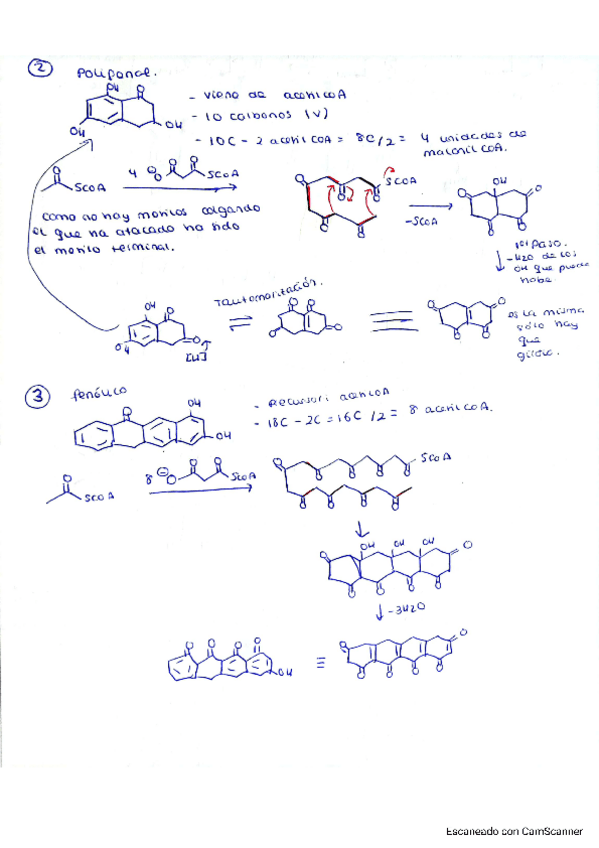 ② Polifenol.
OH O
OH OH
- viene de acetil coA
- 10 carbonos (v)
- 10C - 2 acetil coA = 8C/2 = 4 unidades de
malonil coA.
O SCOA 4 ⊖O O O SCOA
O O O SCOA
O O
-SCOA
O OH O
O
como no hay metilos colgando
el que ha atacado ha sido
el metilo terminal.
1er paso.
-H2O de los
OH que puede
haber
OH O
OH O
[H]
Tautomerización.
O O
O O
O O
O
es la misma
sólo hay
que
girar.
③ fenólico
O OH
OH
- Precursor: acetil coA
- 18C - 2C = 16C /2 = 8 acetil coA.
O SCOA 8 ⊖O O O SCOA
O O O O SCOA
O O O O
O OH OH OH O
O O O O
-3H2O
O O O O
OH
≡
O O
O O O O
Escaneado con CamScanner